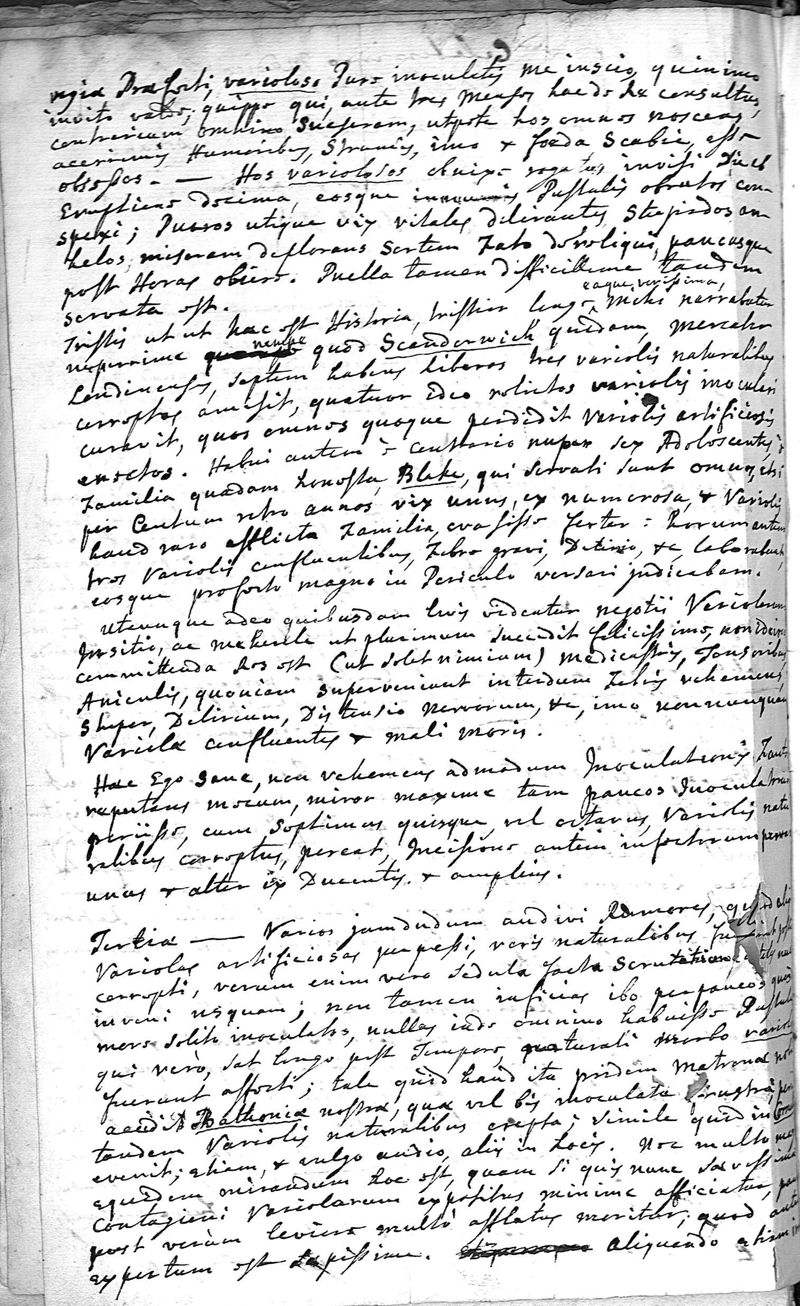 rgiæ Præfecti, varioloso Pure inoculatis me inscio, quinimo
invito vates; quippe qui, ante tres Menses hac de Re consultus,
contrarium omnino suaseram, utpote hos omnes nosceres
acerrimis Humoribus, Strumis, imo & foeda Scabie, esse
obsessos. — Hos variolosos obnixe rogatus invisi Die ab
Eruptione decima, eosque Pustulis obrutos con-
spexi; Pueros utique vix vitales, delirantes, Stupidos an-
helos, miseram deflorans Sortem Fato dereliqui, paucasque
post Horas obiere. Puella tamen difficillime tandem
servata est.
Tristis ut ut hæc est Historia, tristior longe, eaque verissima, Mihi narrabatur
nuperrime nempe quod Scanderwich quidam, Mercator
Londinensis, septem habens liberos tres variolis naturalibus
correptos amisit, quatuor ideo relictos variolis inoculari
curavit, quos omnes quoque perdidit Variolis artificiosis
enectos. Habui autem è contrario nuper sex Adolescentes, è
Familia quadam honesta, Blake, qui servati sunt omnes, etsi
per Centum retro annos vix unus, ex numerosa, & Variolis
haud raro afflicta Familia, evasisse fertur: Horum autem
tres Variolis confluentibus, Febre gravi, Delirio, &c, laborabant,
eosque profecto magno in Periculo versari judicabam.
Utcunque adeo quibusdam levis videatur negotii Variolarum
Insitio, ac mehercle ut plurimum succedit felicissime, non ideo
committenda Res est (ut solet nimium) Medicastris, Tonsoribus,
Aniculis, quoniam superveniunt interdum Febris vehemens,
Stupor, Delirium, Distensio nervorum, &c, imo nonnunquam
Variolæ confluentes & mali moris.
Hæc Ego sane, non vehemens admodum Inoculationis Fautor
reputans mecum, miror maxime tam paucos Inoculatorum
periisse, cum Septimus quisque, vel octavus, Variolis natu
ralibus correptus, pereat, Incisione autem infectorum
unus & alter ex Ducentis & amplius.
Tertiæ — Varios jamdudum audivi Rumores, quod
Variolas artificiosas perpessi, veris naturalibus
correpti, verum enim vero sedula facta Scrutatione,
inveni usquam; non tamen inficias ibo perpaucos
more solito inoculatos, nullas inde omnino habuisse Pustulas
qui verò, sat longo post Tempore, naturali morbo
fuerant affecti; tale quid haud ita pridem Matronæ
accidit Bathoniæ nostræ, quæ vel bis inoculata frustra,
tandem Variolis naturalibus correpta; simile quid in
evenit; etiam, & vulgo audio, aliis in Locis. Nec multo
equidem mirandum hoc est, quam si quis nunc
Contagioni Variolarum expositus minime afficiatur,
post verùm leviore multò afflatus moritur, quod
expertum est sæpissime. aliquando etiam